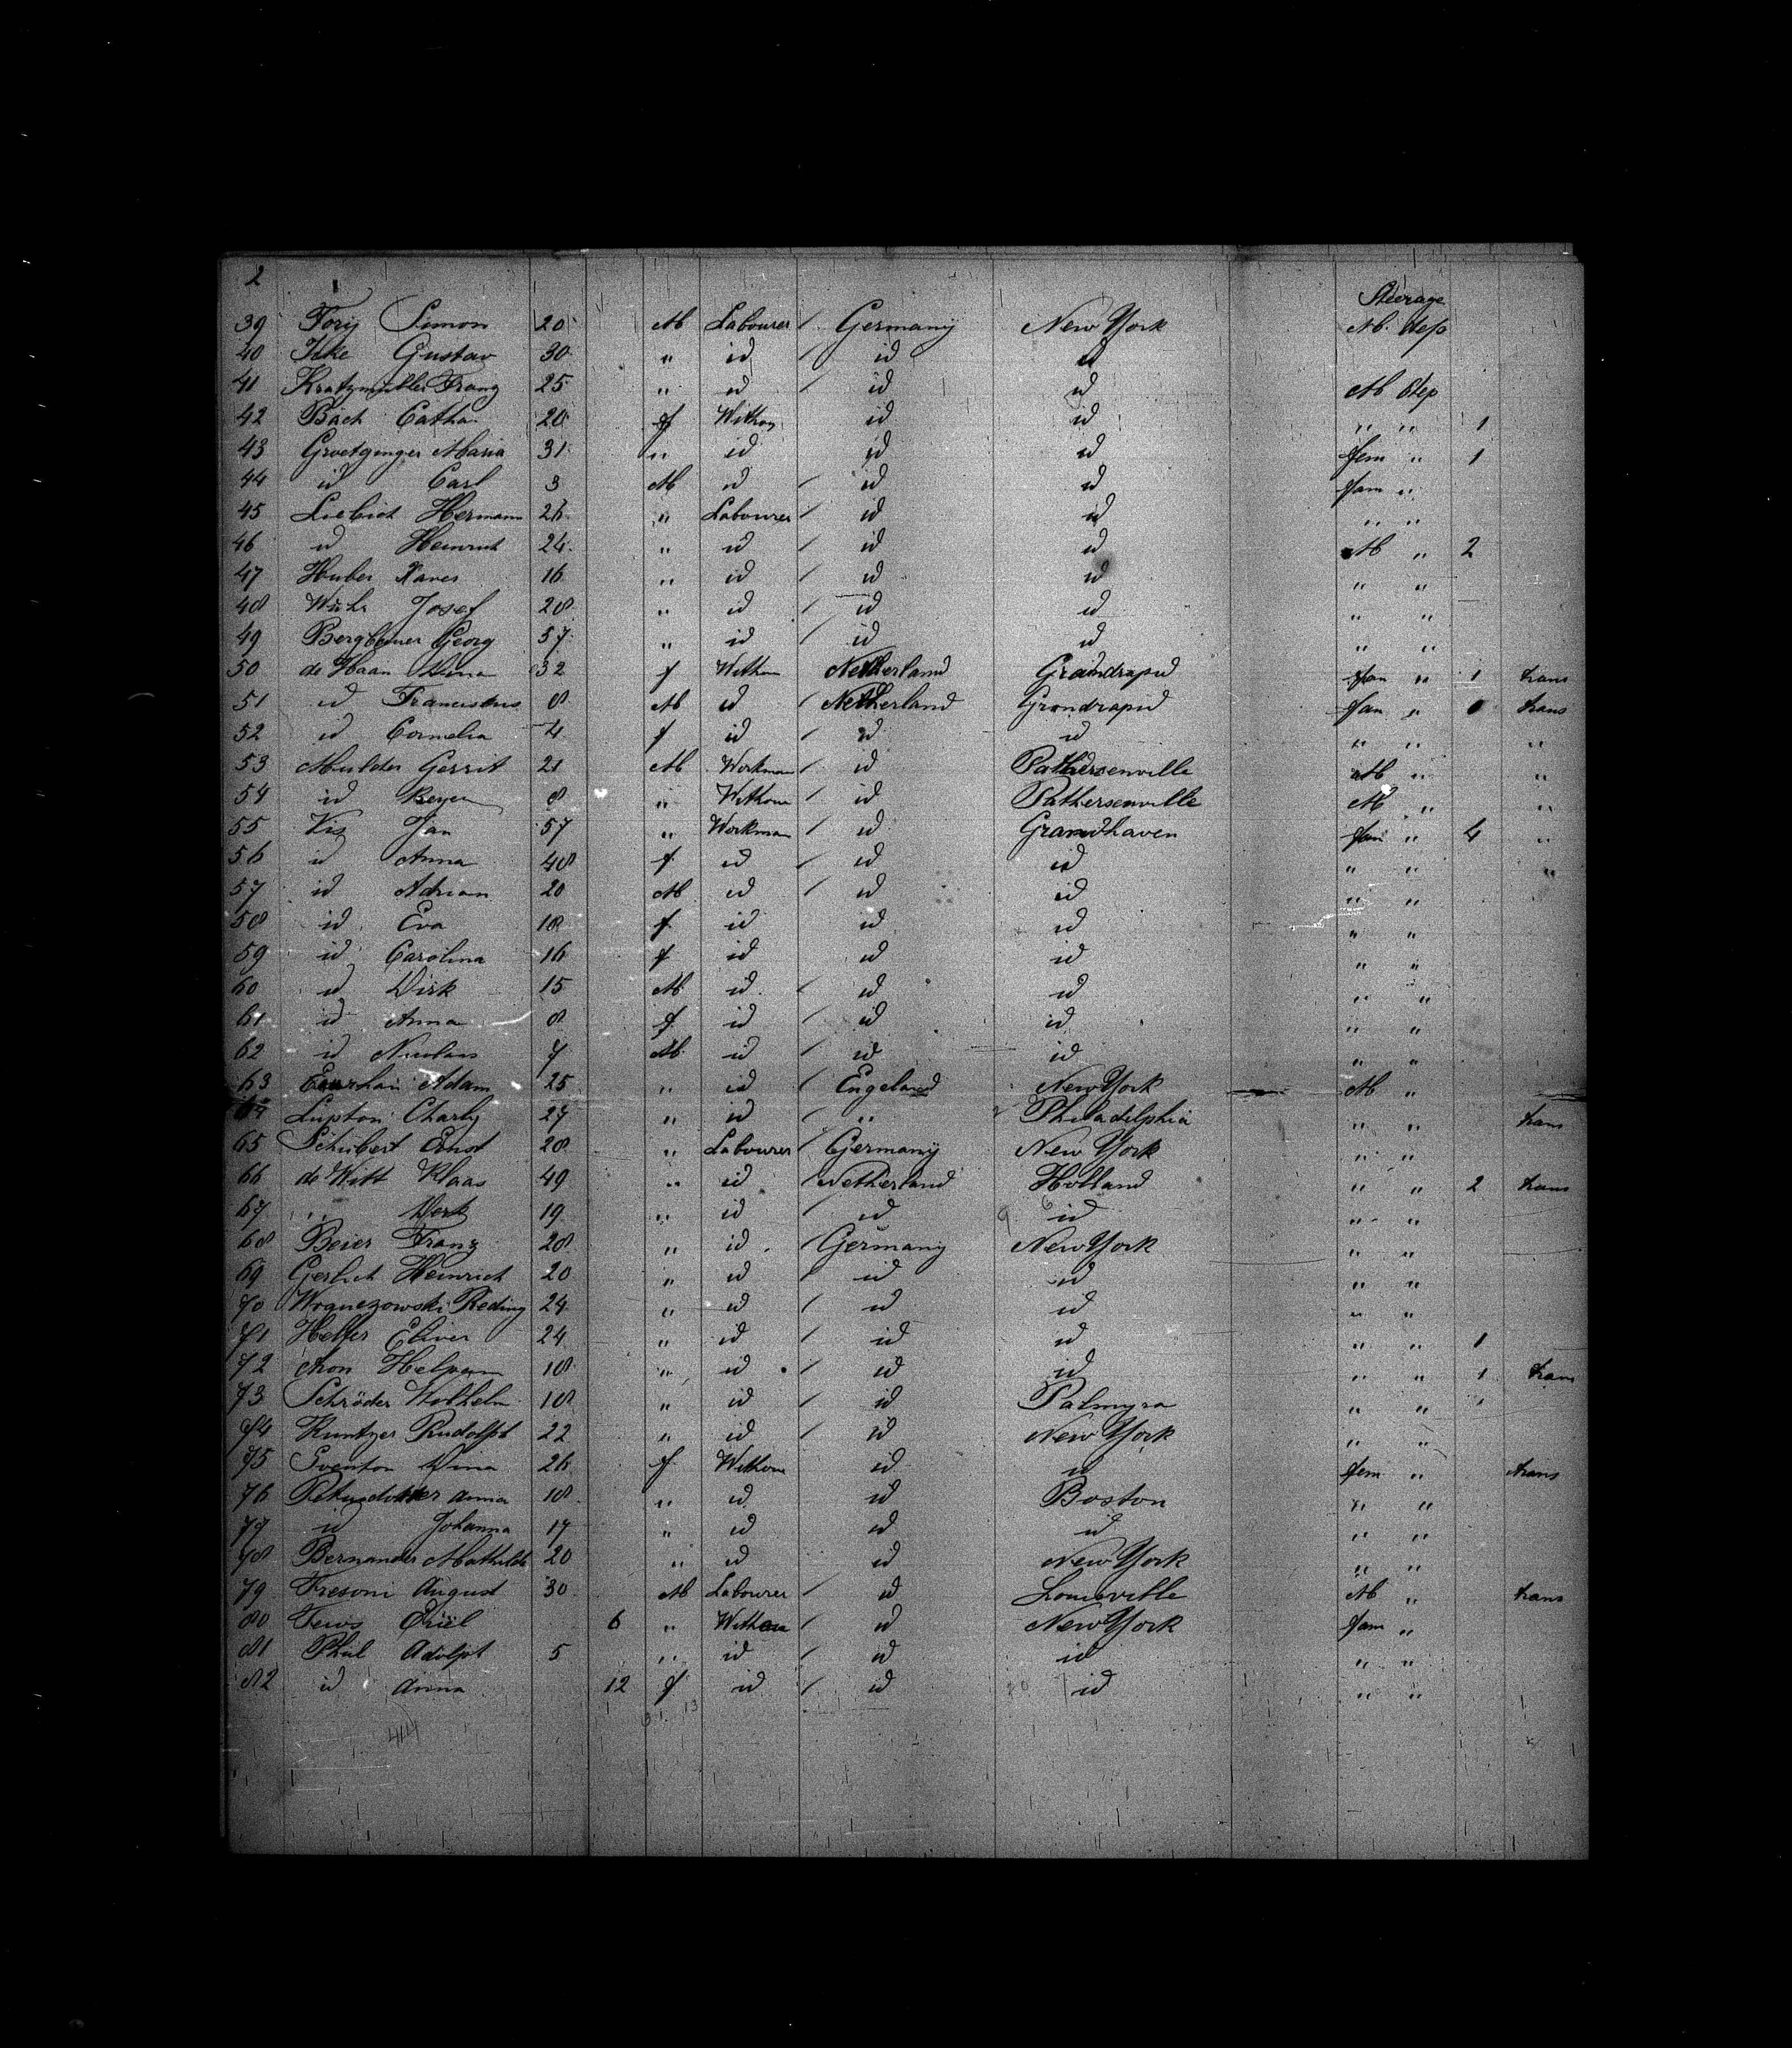 2
Steerage
39 Forij Simon 20 M Labourer Germany New York M. dep
40 Iske Gustav 30 " id id id
41 Kratzmüller Franz 25 " id id id M dep
42 Bach Catha 20 f Without id id " " 1
43 Groetzinger Maria 31 " id id id fem " 1
44 id Carl 3 M id id id fam "
45 Liebich Hermann 26 " Labourer id id " "
46 id Heinrich 24 " id id id M " 2
47 Huber Xaver 16 " id id id " "
48 Josef 28 " id id id " "
49 Georg 57 " id id id " "
50 de Haan Dina 32 f Without Netherland Grandrapid fam " 1 trans
51 id Franciskus 8 M id Netherland Grandrapid fam " trans
52 id Cornelia 4 f id id id " " "
53 Mulder Gerrit 21 M Workman id Pathersenville M " "
54 id 8 " Without id Pathersenville M " "
55 Vis Jan 57 " Workman id Grandhaven fam " 4 "
56 id Anna 48 f id id id " " "
57 id Adrian 20 M id id id " "
58 id Eva 18 f id id id " "
59 id Carolina 16 f id id id " "
60 id Dirk 15 M id id id " "
61 id Anna 8 f id id id " "
62 id Nicolaas 7 M id id id " "
63 Adam 25 " id Engeland New York M "
64 Lupton Charly 27 " id " Philadelphia " " trans
65 Schubert Ernst 28 " Labourer Germany New York " "
66 de Witt Klaas 49 " id Netherland Holland " " 2 trans
67 " Derk 19 " id id id " "
68 Beier Franz 28 " id Germany New York " "
69 Gerlich Heinrich 20 " id id id " "
70 Wronezowski 24 " id id id " "
71 Helfer 24 " id id id " " 1
72 18 " id id id " " 1 trans
73 Schröder Wilhelm 18 " id id Palmyra " " "
74 Kuntzer Rudolph 22 " id id New York " "
75 Dina 26 f Without id id fem " trans
76 Anna 18 " id id Boston " "
77 id Johanna 17 " id id id " "
78 Bernander Mathilde 20 " id id New York " "
79 Fresoni August 30 M Labourer id Louisville M " trans
80 Tews 6 " Without id New York fam "
81 Phil Adolph 5 " id id id " "
82 id Anna 12 f id id id " "
44